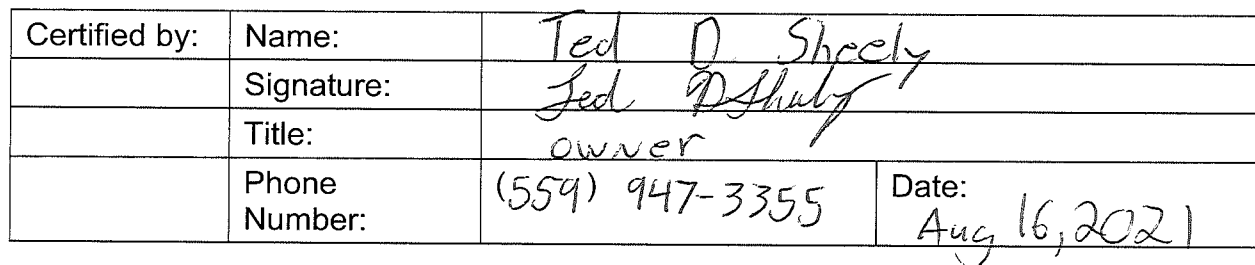 Certified by: Name: Ted D Sheely
Signature: Ted D Sheely
Title: owner
Phone Number: (559) 947-3355 Date: Aug 16, 2021